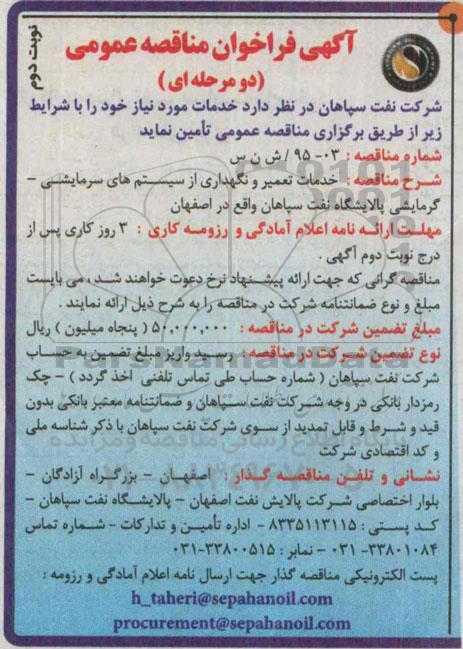 نوبت دوم
آگهی فراخوان مناقصه عمومی
(دو مرحله ای)
شرکت نفت سپاهان در نظر دارد خدمات مورد نیاز خود را با شرایط
زیر از طریق برگزاری مناقصه عمومی تأمین نماید
شماره مناقصه : ۰۳- ۹۵ / ش ن س
شرح مناقصه : خدمات تعمیر و نگهداری از سیستم های سرمایشی –
گرمایشی پالایشگاه نفت سپاهان واقع در اصفهان
مهلت ارائه نامه اعلام آمادگی و رزومه کاری : ۳ روز کاری پس از
درج نوبت دوم آگهی .
مناقصه گرانی که جهت ارائه پیشنهاد نرخ دعوت خواهند شد ، می بایست
مبلغ و نوع ضمانتنامه شرکت در مناقصه را به شرح ذیل ارائه نمایند .
مبلغ تضمین شرکت در مناقصه : ۵۰,۰۰۰,۰۰۰ ( پنجاه میلیون ) ریال
نوع تضمین شرکت در مناقصه : رسید واریز مبلغ تضمین به حساب
شرکت نفت سپاهان ( شماره حساب طی تماس تلفنی اخذ گردد ) – چک
رمزدار بانکی در وجه شرکت نفت سپاهان و ضمانتنامه معتبر بانکی بدون
قید و شرط و قابل تمدید از سوی شرکت نفت سپاهان با ذکر شناسه ملی
و کد اقتصادی شرکت
نشانی و تلفن مناقصه گذار : اصفهان – بزرگراه آزادگان –
بلوار اختصاصی شرکت پالایش نفت اصفهان – پالایشگاه نفت سپاهان –
کد پستی : ۸۳۳۵۱۱۳۱۱۵ - اداره تأمین و تدارکات – شماره تماس
۰۳۱ -۳۳۸۰۱۰۸۴ – نمابر : ۰۳۱-۳۳۸۰۰۵۱۵
پست الکترونیکی مناقصه گذار جهت ارسال نامه اعلام آمادگی و رزومه :
h_taheri@sepahanoil.com
procurement@sepahanoil.com